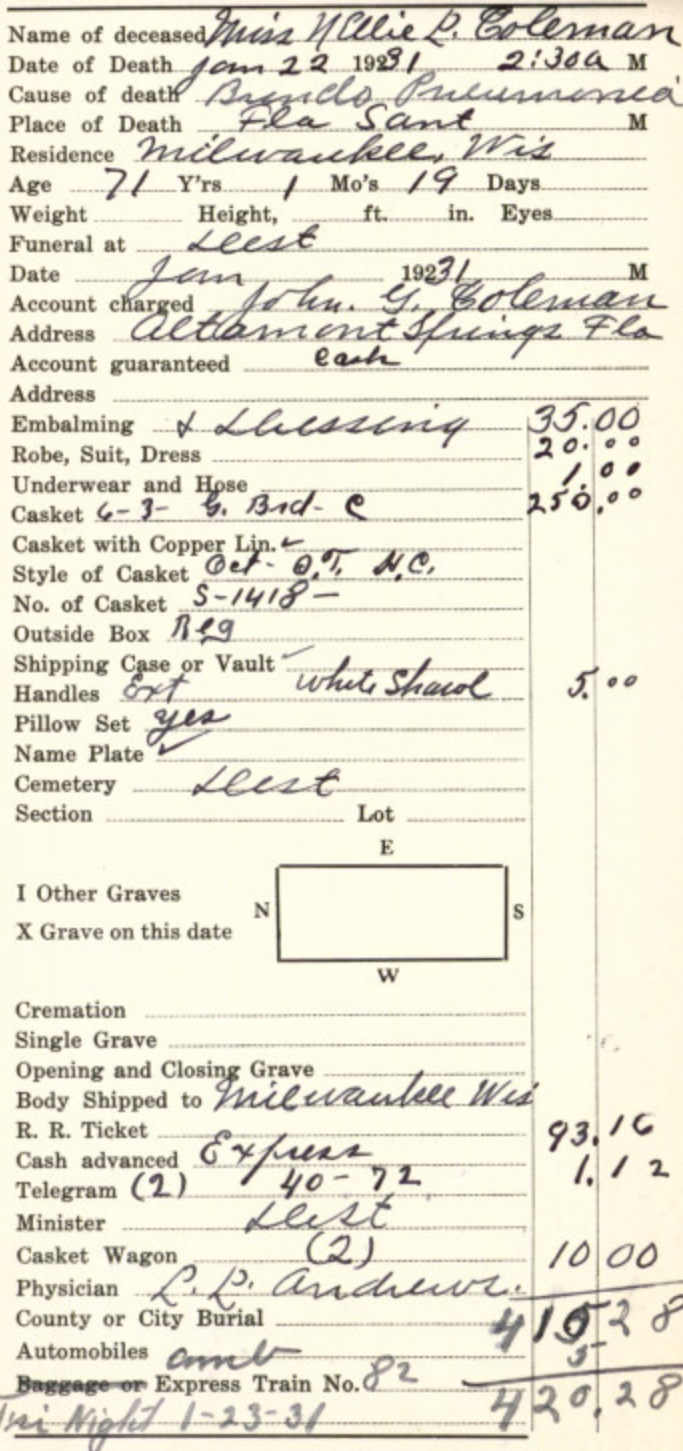 Name of deceased Miss Nellie L. Coleman
Date of Death Jan 22 192 31 2:30a M
Cause of death Broncho Pneumonia
Place of Death Fla Sant M
Residence Milwaukee, Wis
Age 71 Y'rs 1 Mo's 19 Days
Weight Height, ft. in. Eyes
Funeral at Dest
Date Jan 192 31 M
Account charged John. G. Coleman
Address Altamont Springs Fla
Account guaranteed Cash
Address
Embalming & Dressing 35.00
Robe, Suit, Dress 20.00
Underwear and Hose 1.00
Casket 6-3- G. Brd- C 250.00
Casket with Copper Lin.
Style of Casket Oct - O.T. H.C.
No. of Casket S-1418 -
Outside Box Reg
Shipping Case or Vault
Handles Ext White Shawl 5.00
Pillow Set yes
Name Plate ✓
Cemetery Dest
Section Lot
E
I Other Graves
N S
X Grave on this date
W
Cremation
Single Grave
Opening and Closing Grave
Body Shipped to Milwaukee Wis
R. R. Ticket 93.16
Cash advanced Express
Telegram (2) 40 - 72 1.12
Minister Dest
Casket Wagon (2) 10 00
Physician L. L. Andrews.
County or City Burial 415 28
Automobiles amb 5
Baggage or Express Train No. 82 420.28
Fri Night 1-23-31